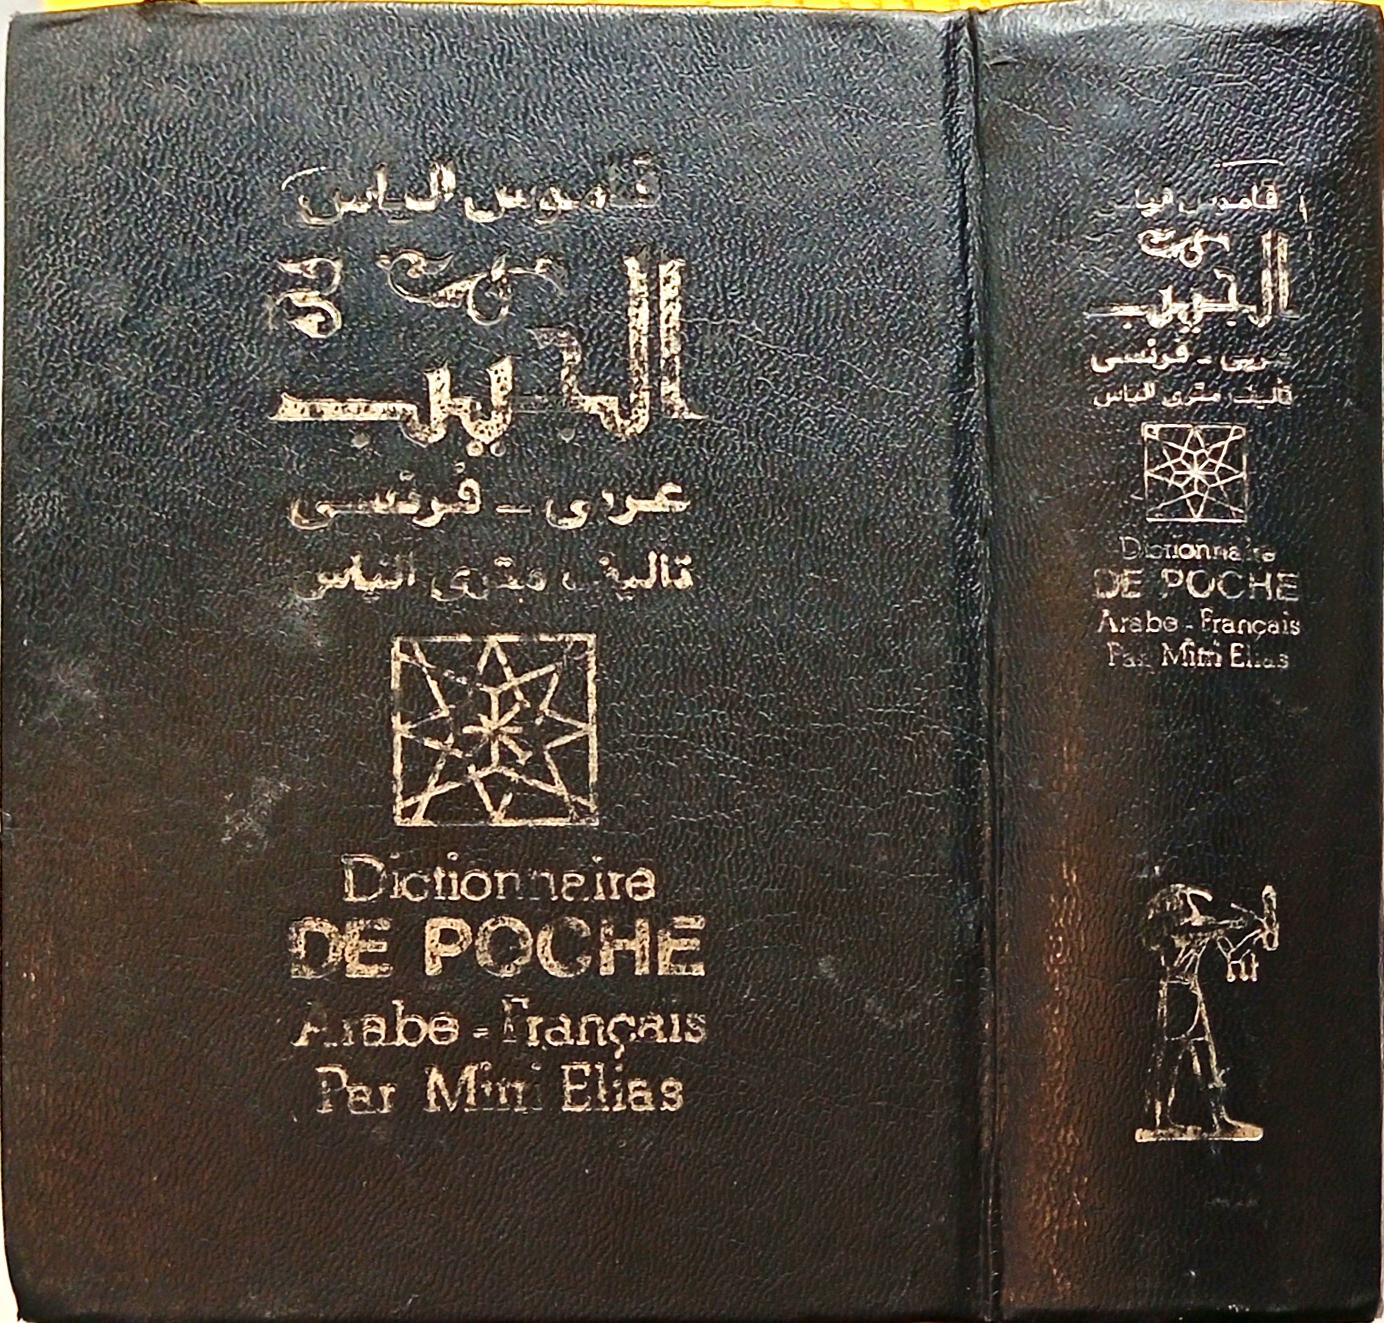 قاموس الياس
الجيب
عربى - فرنسى
تاليف مترى الياس
Dictionnaire
DE POCHE
Arabe - Français
Par Mitri Elias
قاموس الياس
الجيب
عربى - فرنسى
تاليف مترى الياس
Dictionnaire
DE POCHE
Arabe - Français
Par Mitri Elias